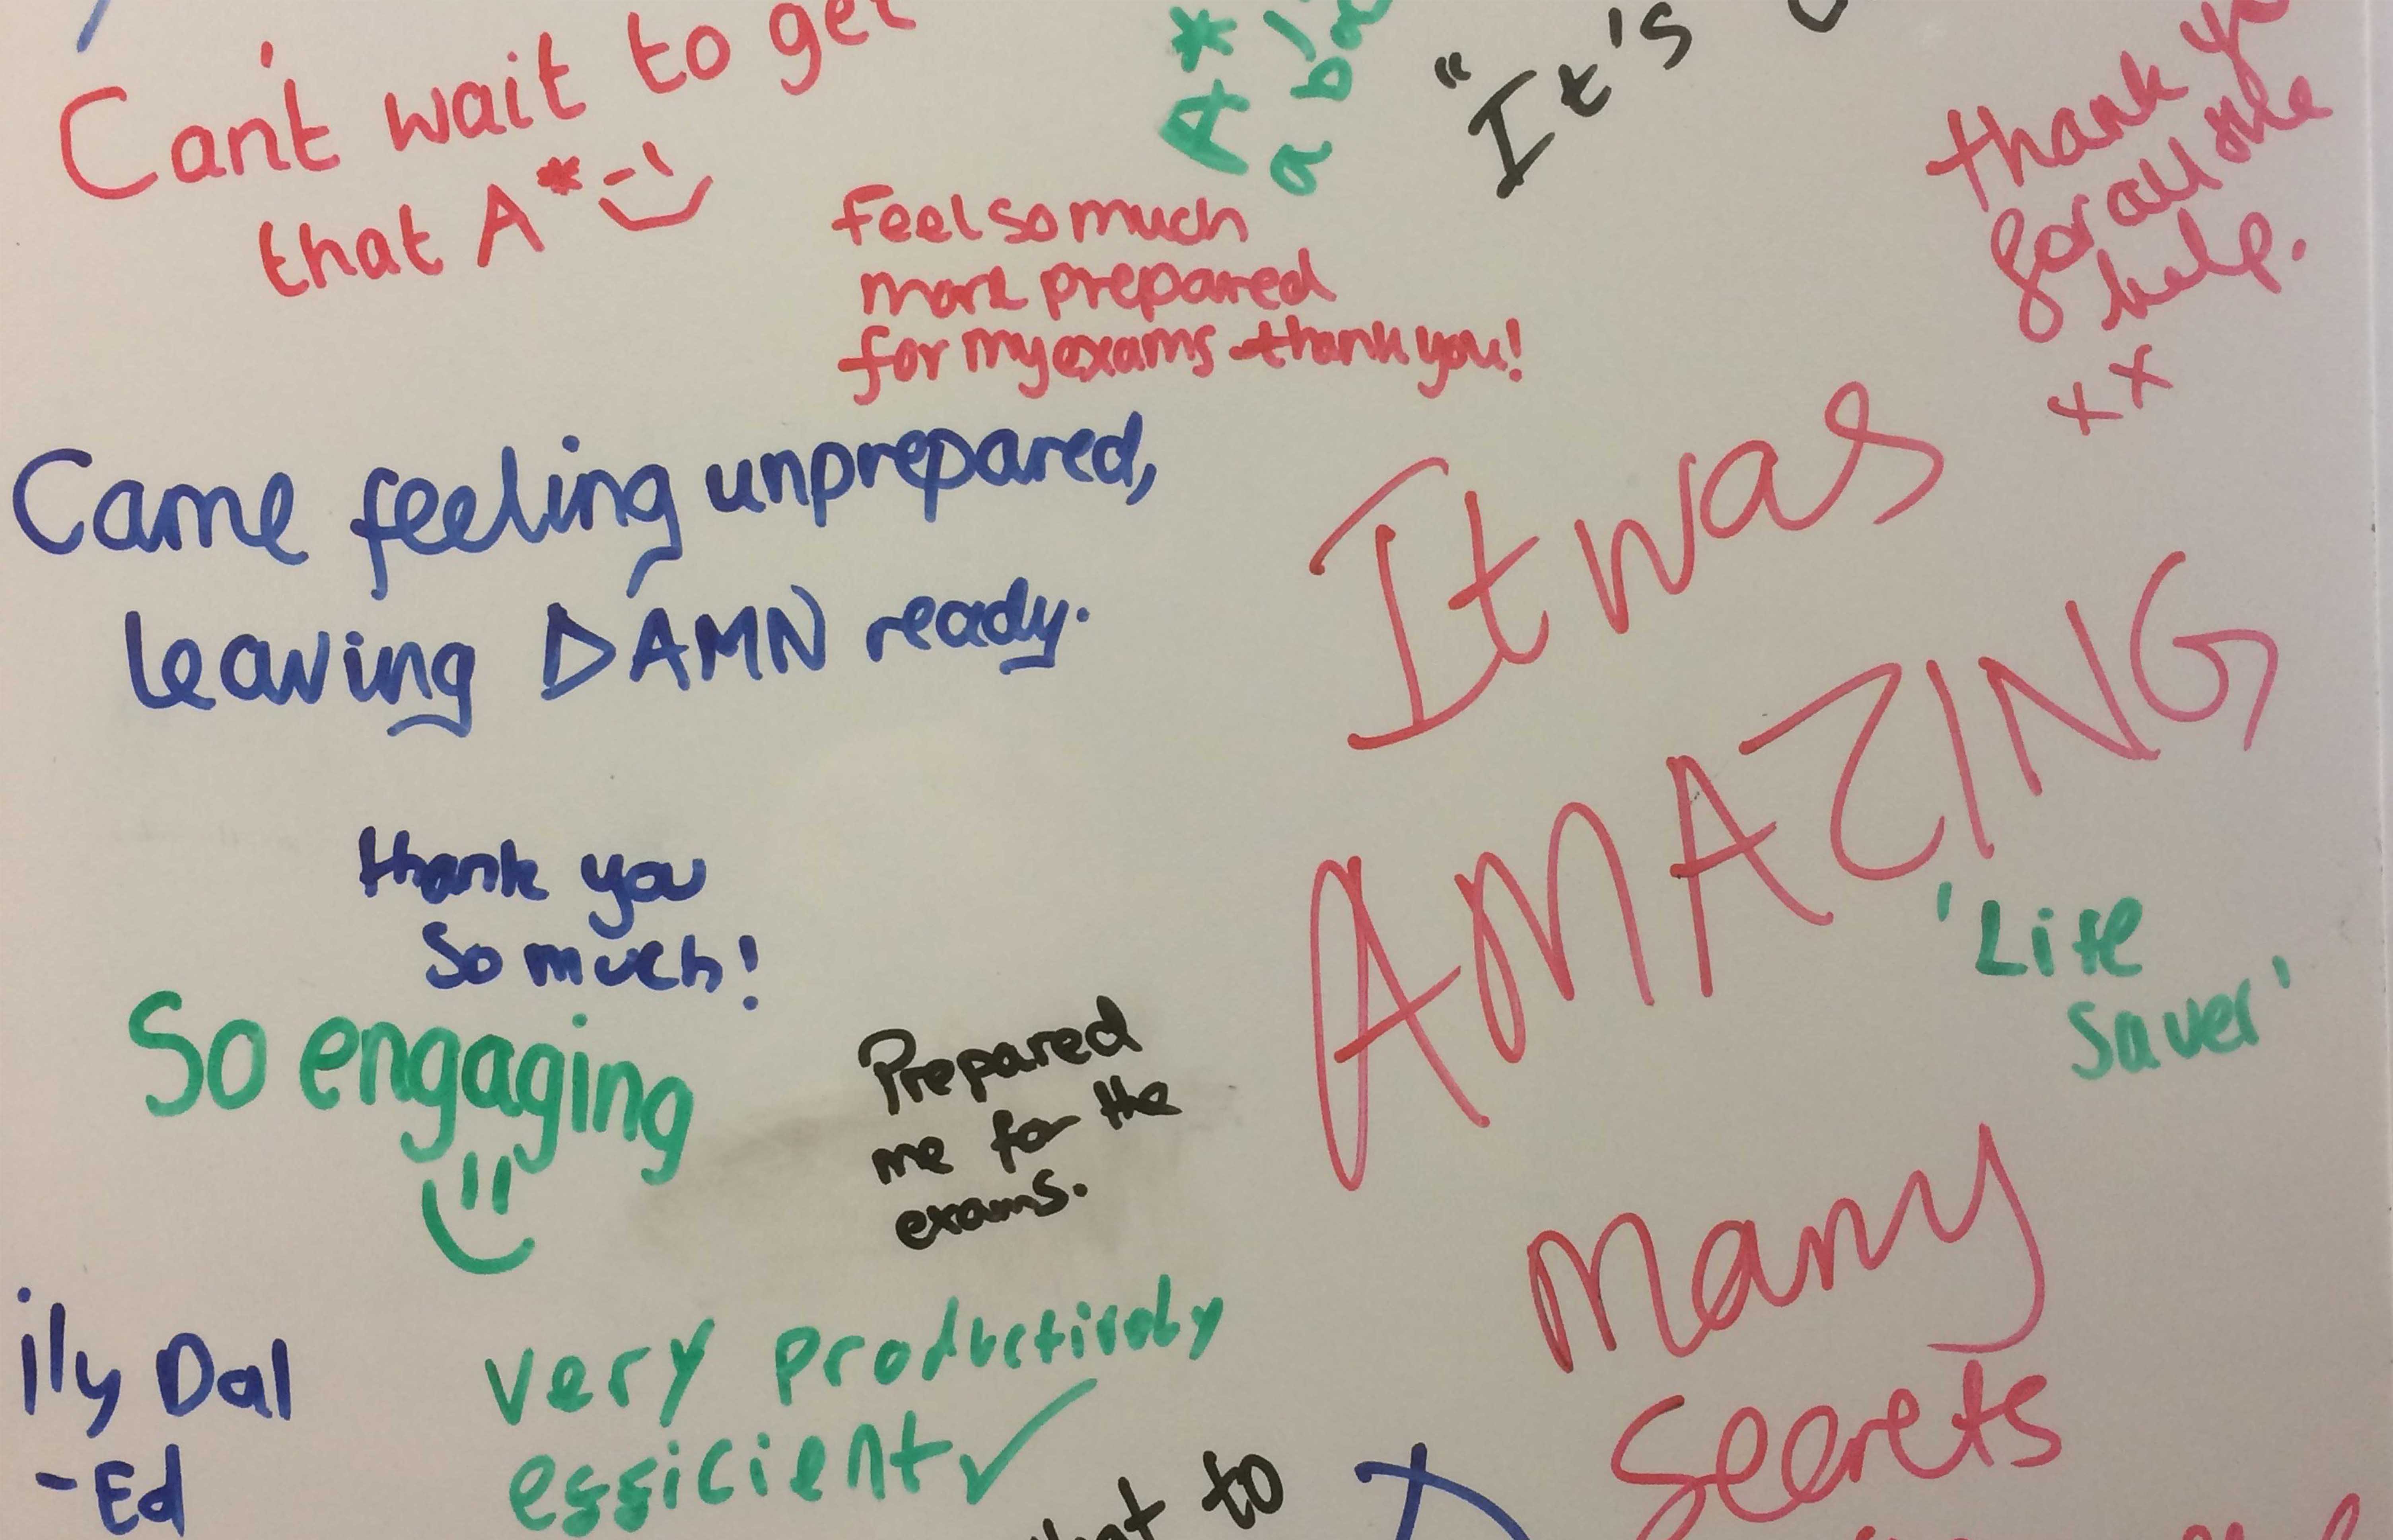 Can't wait to get
that A*
A*
a
"It's
thank
for all the
help.
xx
Feel so much
more prepared
for my exams thank you!
Came feeling unprepared,
leaving DAMN ready.
It was
AMAZING
'Life
Saver'
thank you
so much!
So engaging
Prepared
me for the
exams.
Many
Secrets
ily Dal
-Ed
very productively
essicient ✓
to